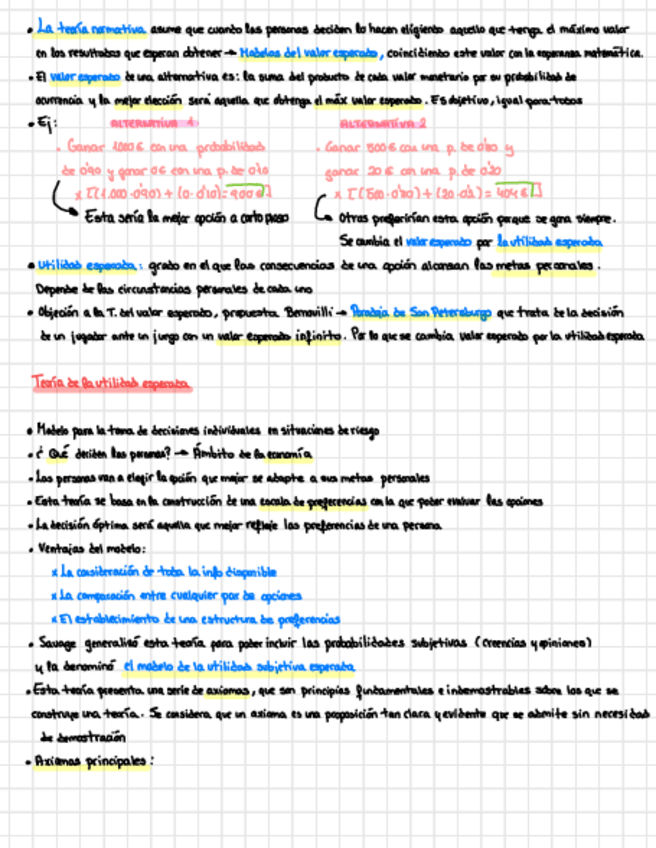 • La teoría normativa asume que cuando las personas deciden lo hacen eligiento aquello que tenga el máximo valor
en los resultados que esperan obtener → Modelos del valor esperado, coincidiendo este valor con la esperanza matemática.
• El valor esperado de una alternativa es: la suma del producto de cada valor monetario por su probabilidad de
ocurrencia y la mejor elección será aquella que obtenga el máx valor esperado. Es objetivo, igual para todos
• Ej: ALTERNATIVA 1 ALTERNATIVA 2
· Ganar 1000€ con una probabilidad · Ganar 500€ con una p. de 0'80 y
de 0'90 y ganar 0€ con una p. de 0'10 ganar 20€ con una p. de 0'20
x Σ[(1.000·0'90) + (0·0'10) = 900€] x Σ[(500·0'80) + (20·0'2) = 404€]
Esta sería la mejor opción a corto plazo Otras preferirían esta opción porque se gana siempre.
Se cambia el valor esperado por la utilidad esperada
• Utilidad esperada: grado en el que las consecuencias de una opción alcanzan las metas personales.
Depende de las circunstancias personales de cada uno
• Objeción a la T. del valor esperado, propuesta Bernouilli → Paradoja de San Petersburgo que trata de la decisión
de un jugador ante un juego con un valor esperado infinito. Por lo que se cambia valor esperado por la utilidad esperada
Teoría de la utilidad esperada
• Modelo para la toma de decisiones individuales en situaciones de riesgo
• ¿Qué deciden las personas? → Ámbito de la economía
• Las personas van a elegir la opción que mejor se adapte a sus metas personales
• Esta teoría se basa en la construcción de una escala de preferencias con la que poder evaluar las opciones
• La decisión óptima será aquella que mejor refleje las preferencias de una persona
• Ventajas del modelo:
x La consideración de toda la info disponible
x La comparación entre cualquier par de opciones
x El establecimiento de una estructura de preferencias
• Savage generalizó esta teoría para poder incluir las probabilidades subjetivas (creencias y opiniones)
y la denominó el modelo de la utilidad subjetiva esperada
• Esta teoría presenta una serie de axiomas, que son principios fundamentales e indemostrables sobre los que se
construye una teoría. Se considera que un axioma es una proposición tan clara y evidente que se admite sin necesidad
de demostración
• Axiomas principales: